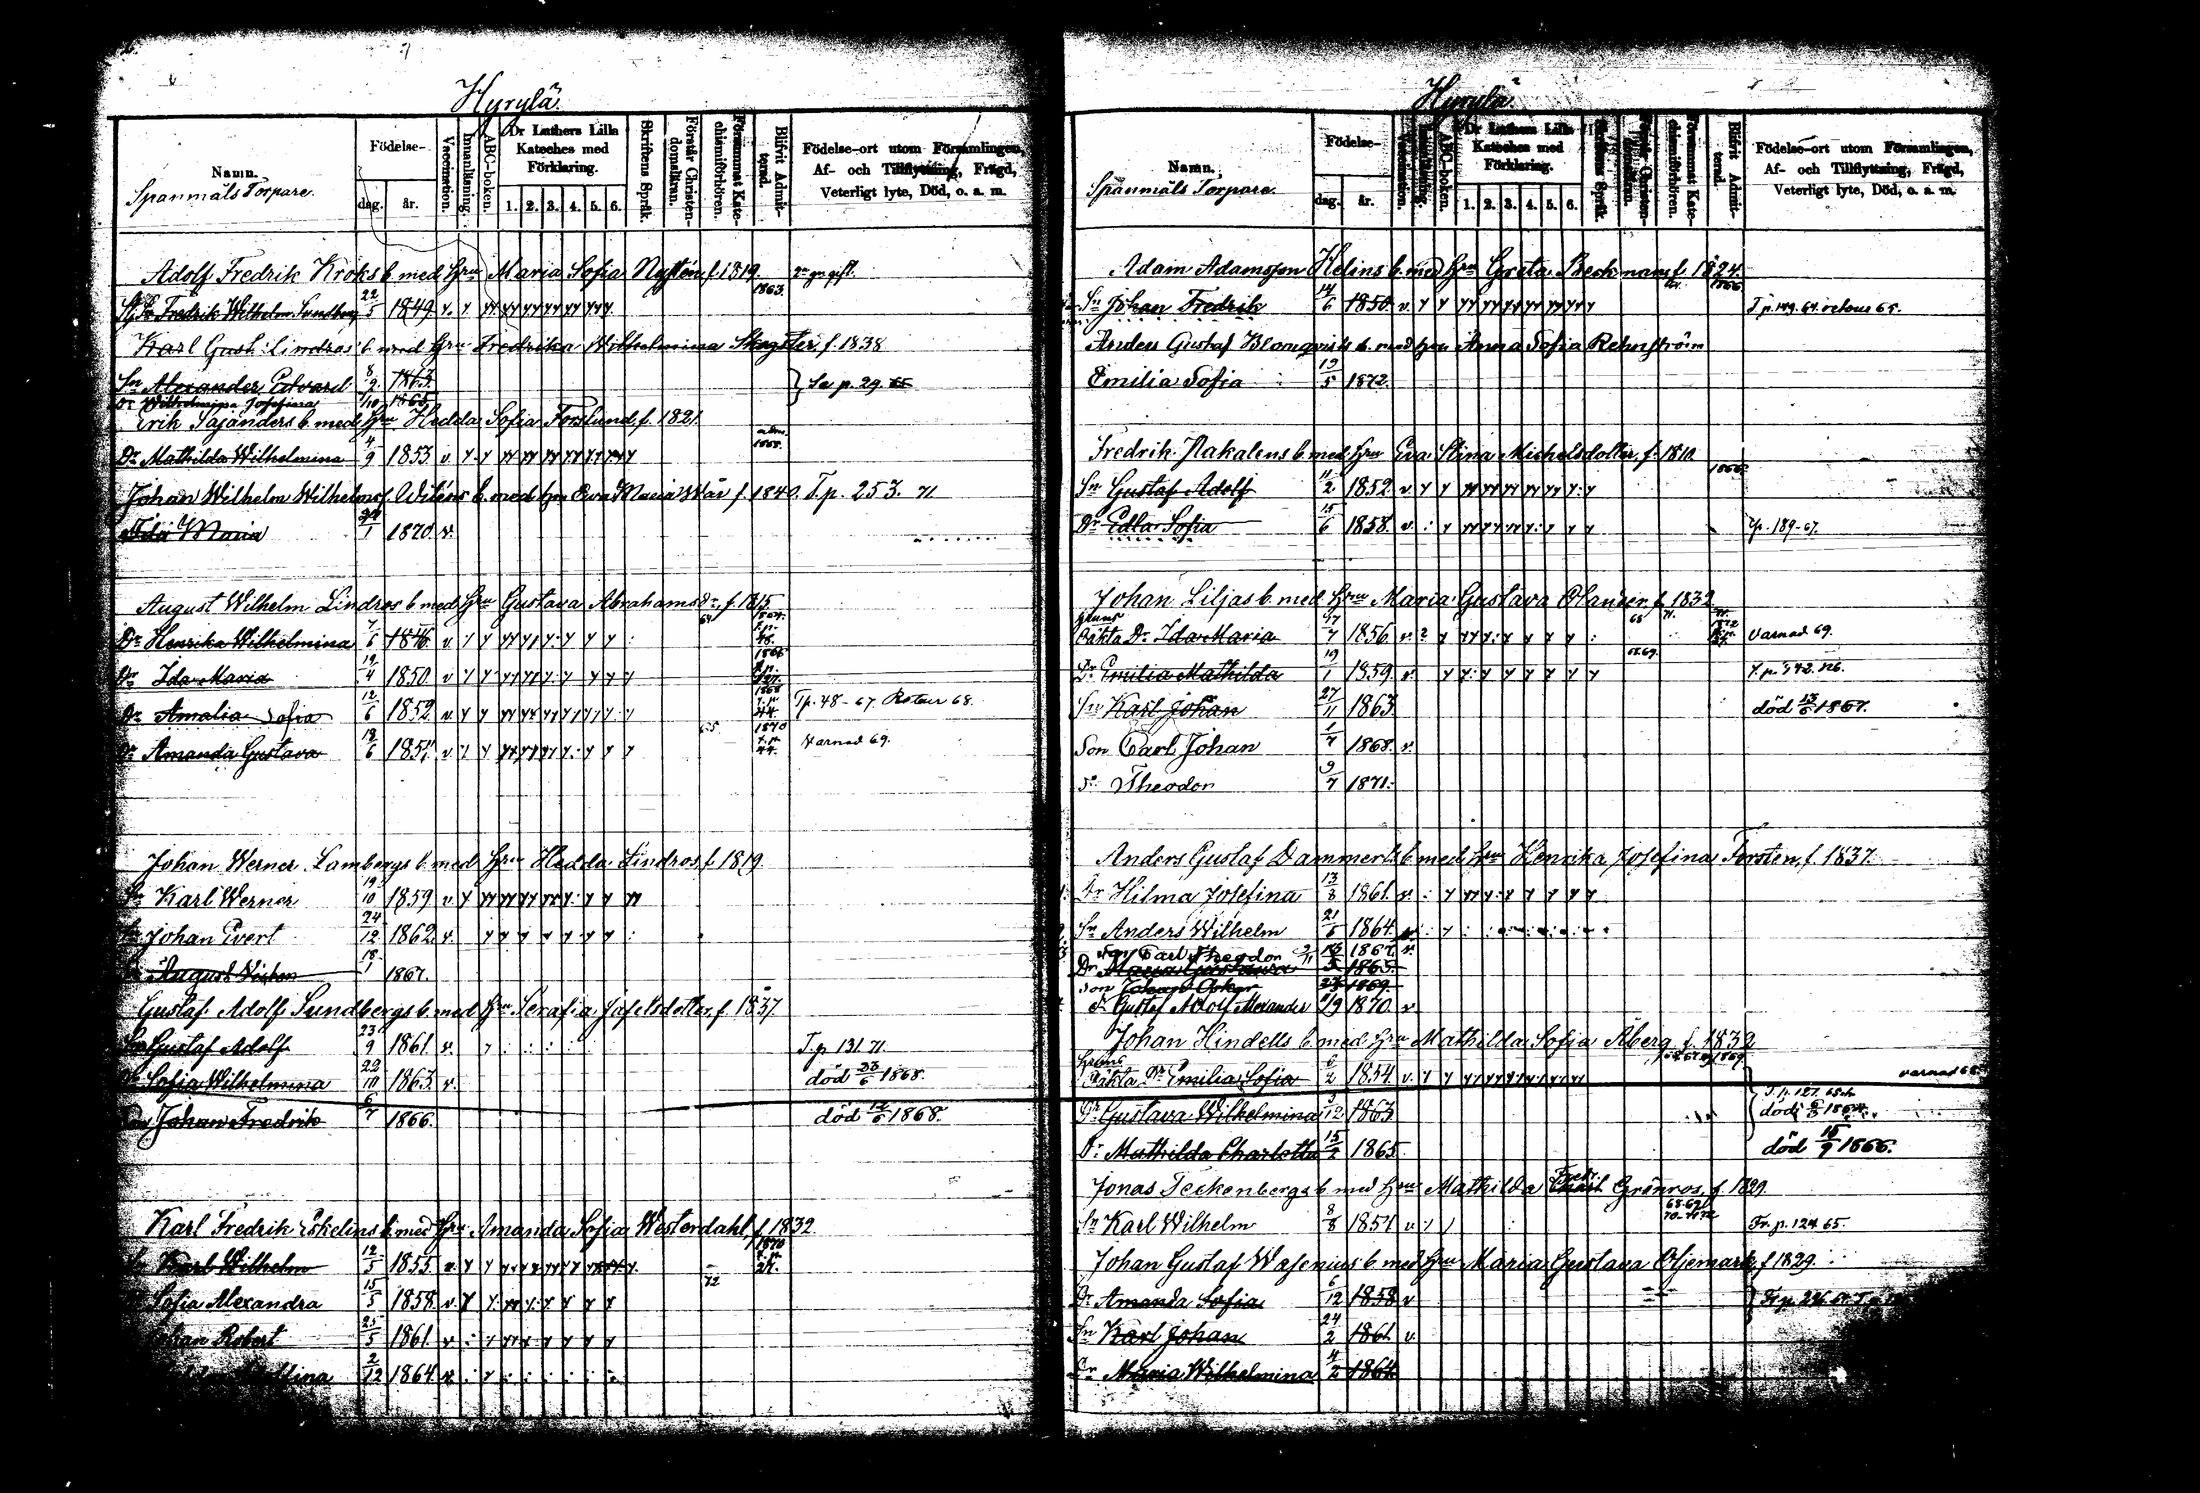 Hyrylä
Namn.
Spanmåls Torpare.
Födelse-
dag. år.
Vaccination.
Innanläsning.
ABC-boken.
Dr Luthers Lilla Kateches med Förklaring.
1. 2. 3. 4. 5. 6.
Skriftens Språk.
Förstår Christendomsläran.
Försummat Katechismiförhören.
Blifvit Admitterad.
Födelse-ort utom Församlingen,
Af- och Tillflyttning, Frägd,
Veterligt lyte, Död, o. a. m.
Adolf Fredrik Kroks b. med Hru Maria Sofia f. 1819.
Fredrik Wilhelm Sundberg 22/5 1849 1863.
Karl Gust. Lindros b med Hru Fredrika Wilhelmina f. 1838
Sn Alexander Edvard 8/2 1863. Se p. 29. 65
Dr Wilhelmina Josefina 1865
Erik Sajanders b. med Hru Hedda Sofia Forslund f. 1821.
Dr Mathilda Wilhelmina 4/9 1853 v. 1868.
Johan Wilhelm Wilhelmsf. b. med Hru Eva Maria f. 1840. T.p. 253. 71
Maria 1870 v.
August Wilhelm Lindros b med Hru Gustava Abrahamsdr. f. 1815
Dr Henrika Wilhelmina 7/6 1846 v 64 1864.
Dr Ida Maria 19/4 1850. v 1866
Dr Amalia Sofia 12/6 1852 v 1868 T.p. 48-67 Retour 68.
Dr Amanda Gustava 18/6 v 1870 Varnad 69.
Johan Werner Lambergs b. med Hru Hedda Lindros f. 1819.
Sn Karl Werner 19/10 1859 v
Sn Johan Evert 24/12 1862 v.
August 18/1 1867.
Gustaf Adolf Sundbergs b. med Hru Serafia f. 1837.
Sn Gustaf Adolf 23/9 1861. v. T.p 131. 71.
Dr Sofia Wilhelmina 22/10 1863. v. död 23/6 1868.
Son Johan Fredrik 6/7 1866. död 12/6 1868.
Karl Fredrik Eskelins b med Hru Amanda Sofia Westerdahl, f. 1832.
Sn Karl Wilhelm 12/5 1855 v. 1870
Sofia Alexandra 15/5 1858. v. 72
Johan Robert 25/5 1861. v
2/12 1864.
Hyrylä
Namn.
Spanmåls Torpare.
Födelse-
dag. år.
Vaccination.
Innanläsning.
ABC-boken.
Dr Luthers Lilla Kateches med Förklaring.
1. 2. 3. 4. 5. 6.
Skriftens Språk.
Förstår Christendomsläran.
Försummat Katechismiförhören.
Blifvit Admitterad.
Födelse-ort utom Församlingen,
Af- och Tillflyttning, Frägd,
Veterligt lyte, Död, o. a. m.
Adam Adamsson Helins b. med Hru Greta Beckman, f. 1824.
Sn Johan Fredrik 14/6 1850. v. 1866 T.p. 149. 64. retour 65.
Anders Gustaf Blomqvists b. med Hru Anna Sofia Rehnström
Emilia Sofia 13/5 1872.
Fredrik b med Hru Eva Stina Michelsdotter, f. 1810
Sn Gustaf Adolf 11/2 1852 v 1866
Dr Edla Sofia 15/6 1858. v. T.p. 189-67.
Johan Liljas b. med Hru Maria Gustava Olander f. 1832
oäkta Dr Ida Maria 1856. v. 68 71. 1872 Varnad 69.
Dr Emilia Mathilda 19/1 1859. v. 68.69.
Sn Karl Johan 27/11 1863. död 1867.
Son Carl Johan 1/7 1868. v
Sn Theodor 9/7 1871.
Anders Gustaf Dammerts b. med Hru Henrika Josefina Forsten, f. 1837.
Dr Hilma Josefina 13/8 1861. v.
Sn Anders Wilhelm 1864.
Carl Theodor 1867. v.
Dr Maria Gustava 1865.
Son Johan Oskar 1869.
Sn Gustaf Adolf Alexander 1870. v.
Johan Hindells b. med Hru Mathilda Sofia Åberg f. 1832
oäkta Dr Emilia Sofia 6/2 1854. v. 1869 varnad 68
Dr Gustava Wilhelmina 1863 T.p. 127. död
Dr Mathilda Charlotta 15/2 1865. död 15/9 1866.
Jonas Teckenbergs b. med Hru Mathilda Fredr. Grönros, f. 1829.
Sn Karl Wilhelm 8/8 1851. v Fr. p. 124 65.
Johan Gustaf Wasenius b. med Hru Maria Gustava Oljemark, f 1829.
Dr Amanda Sofia 6/12 1858 v
Sn Karl Johan 24/2 1861 v.
Dr Maria Wilhelmina 4/2 1864